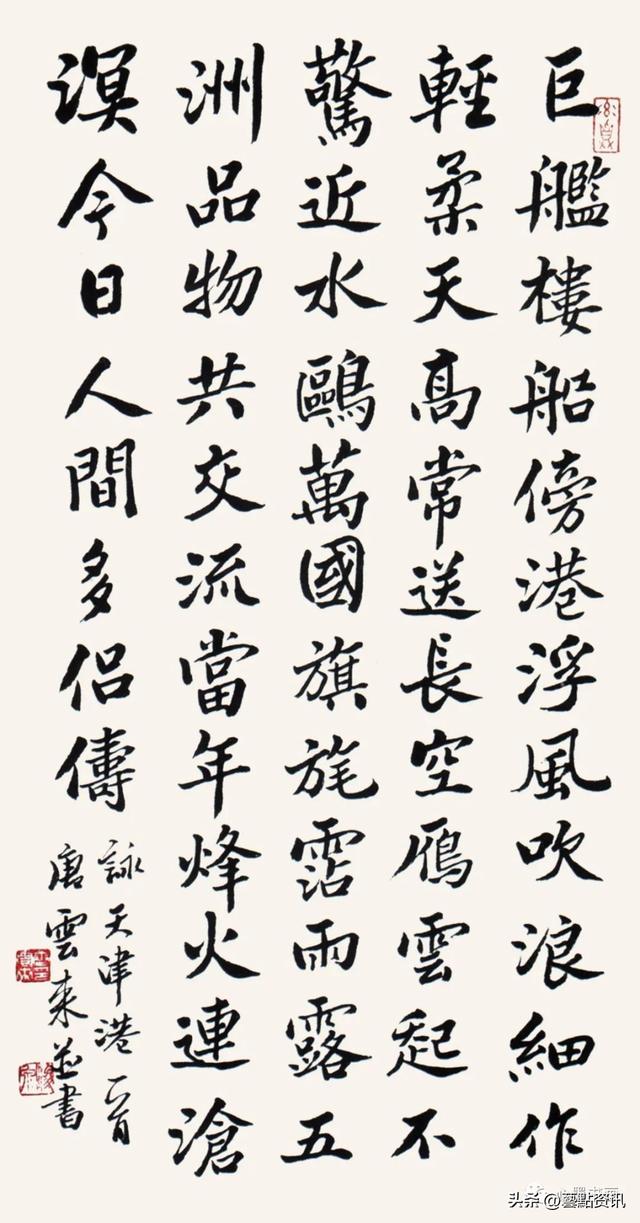 巨艦樓船傍港浮風吹浪細作
輕柔天高常送長空雁雲起不
驚近水鷗萬國旗旄霑雨露五
洲品物共交流當年烽火連滄
溟今日人間多侣儔
詠天津港一首
唐雲来並書
头条@藝點资讯